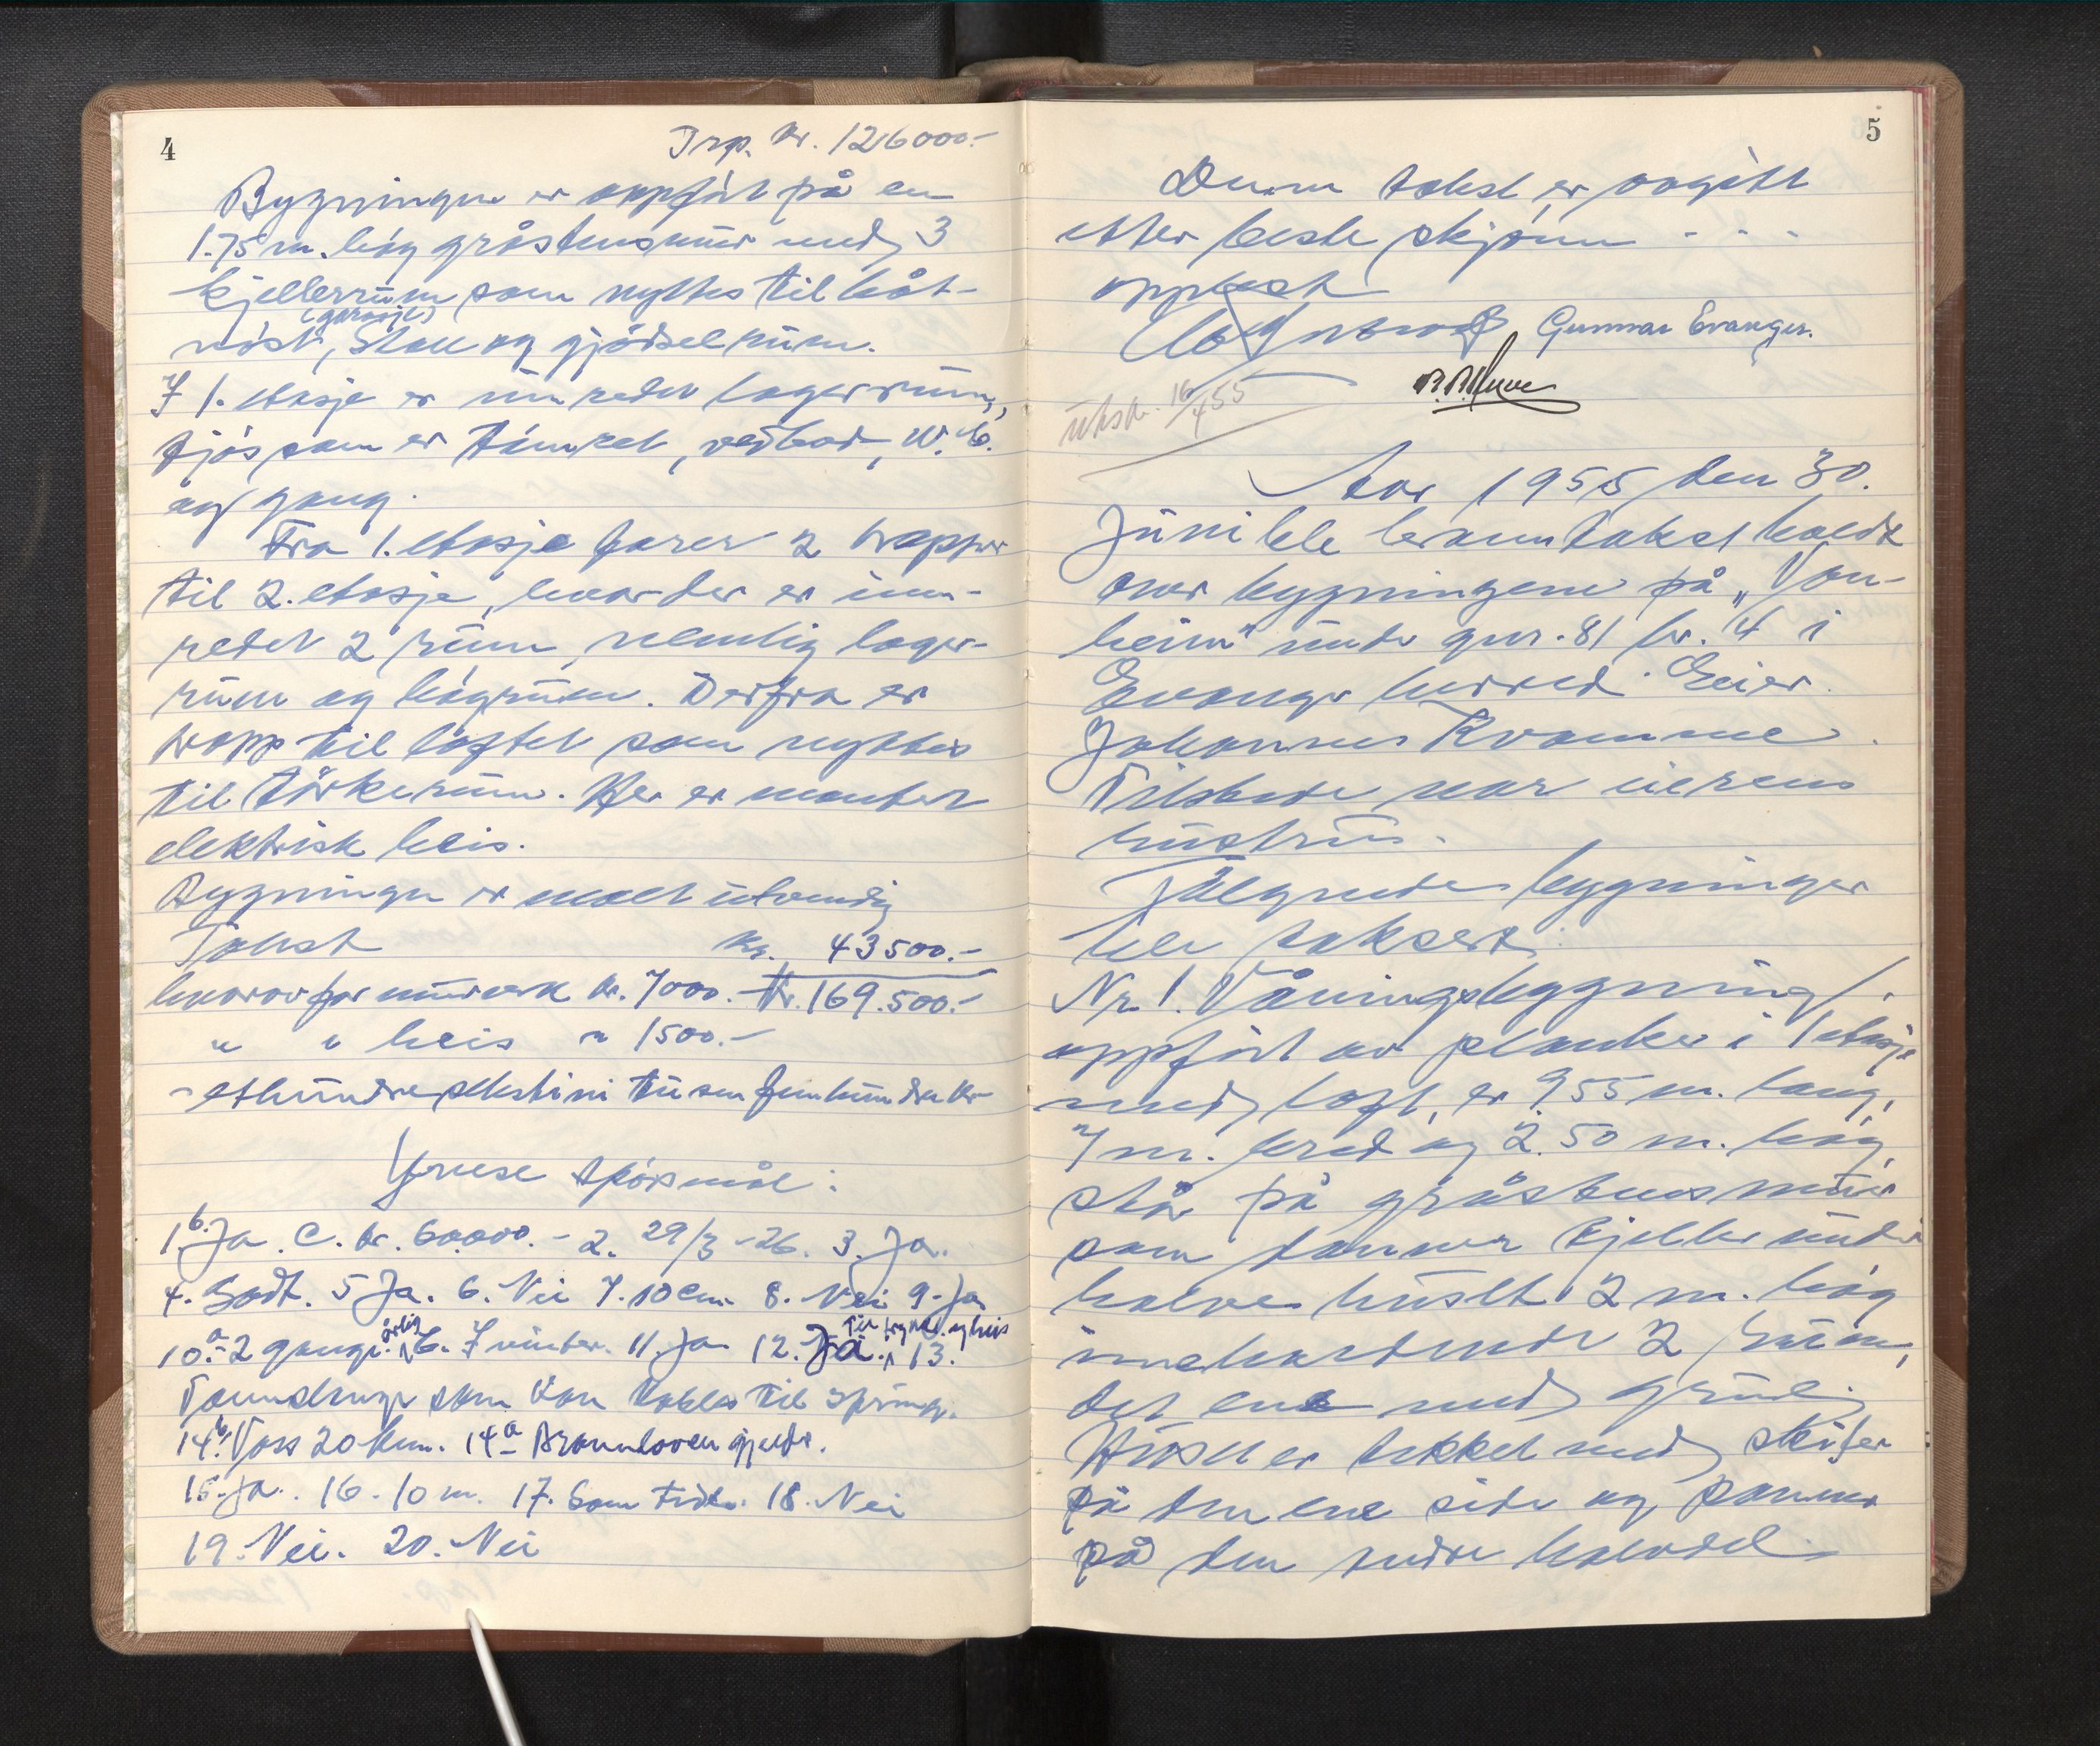 4
Trsp. kr. 126000.-
Bygningen er oppført på en
1.75 m. høg gråstensmur med 3
kjellerrum som nyttes til båt-
(garasje)
nøst, Stall og gjødselrum.
I 1. etasje er innredet lagerrum,
fjøs som er tømret, vedbod, W.C.
og gang.
Fra 1. etasje fører 2 trapper
til 2. etasje, hvor der er inn-
redet 2 rum, nemlig lager-
rum og høgrum. Derfra er
trapp til loftet som nyttes
til tørkerum. Her er montert
elektrisk heis.
Bygningen er malt utvendig
Takst kr. 43500.-
hvorav for murverk kr. 7000.- Kr. 169.500.-
" " heis " 1500.-
- ethundresekstini tusen femhundre kr
Gruse spørsmål:
1b. Ja. C. kr. 60.000.- 2. 29/3-26. 3. Ja.
4. Godt. 5 Ja. 6. Nei 7. 10 cm. 8. Nei 9. Ja
10.a 2 gange årlig b. I vinter. 11. Ja 12. Ja. Til lys og heis 13.
Vannslange som kan kobles til spring.
14b. Voss 20 km. 14a Brannloven gjelder.
15. Ja. 16. 10 m. 17. Som 18. Nei
19. Nei. 20. Nei
5
Denne takst er avgitt
etter beste skjønn - - -
opplest
Gunnar Evanger.
utskr. 16/4 55
Aar 1955 den 30.
Juni ble branntakst holdt
over bygningene på „Von-
heim" under gnr. 81 br. 4 i
Evanger herred. Eier
Johannes Kvamme.
Tilstede var eierens
hustru.
Følgende bygninger
ble taksert:
Nr. 1. Våningsbygning,
oppført av planker i 1 etasje
med loft, er 9.55 m. lang,
7 m. bred og 2.50 m. høg,
står på gråstensmur
som danner kjeller under
halve huset 2 m. høg
inneholdende 2 rum,
det ene med grue.
Huset er tekket med skifer
på den ene side og panner
på den andre halvdel.